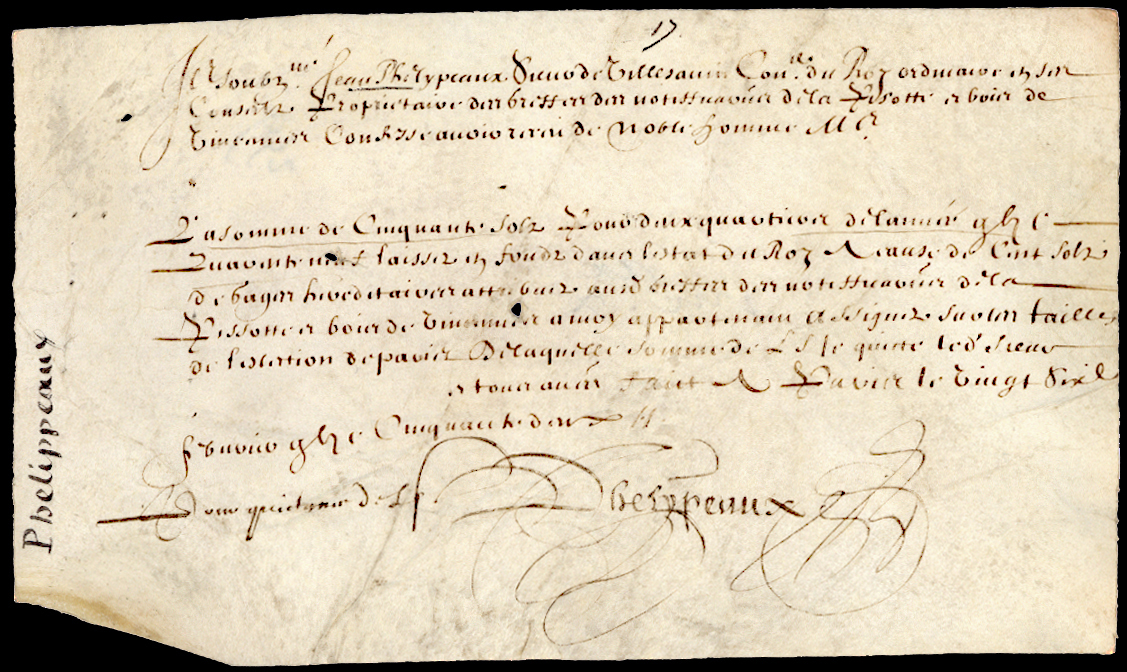 17
Je soubz.né Jean Phelypeaux Sieur de Villesavin Con.er du Roy ordinaire en ses
Conseilz Proprietaire des greffes des nottiffications de la Pissotte et bois de
Vincennes Confesse avoir receu de Noble homme M.e
La somme de Cinquante solz Pour deux quartiers de l'année gbi c
Quarente neuf laissez en fondz dans lestat du Roy A cause de Cent solz
de gages hereditaires attribuez ausd greffes des nottiffications de la
Pissotte et bois de Vincennes a moy appartenans Assignez sur les tailles
de l'eslection de paris De laquelle somme de L s Je quitte led sieur
et tous aures faict A Paris le Vingt Six.e
febvrier gbi c Cinquante deux
Pour quictance de L s Phelypeaux
Phelippeaux